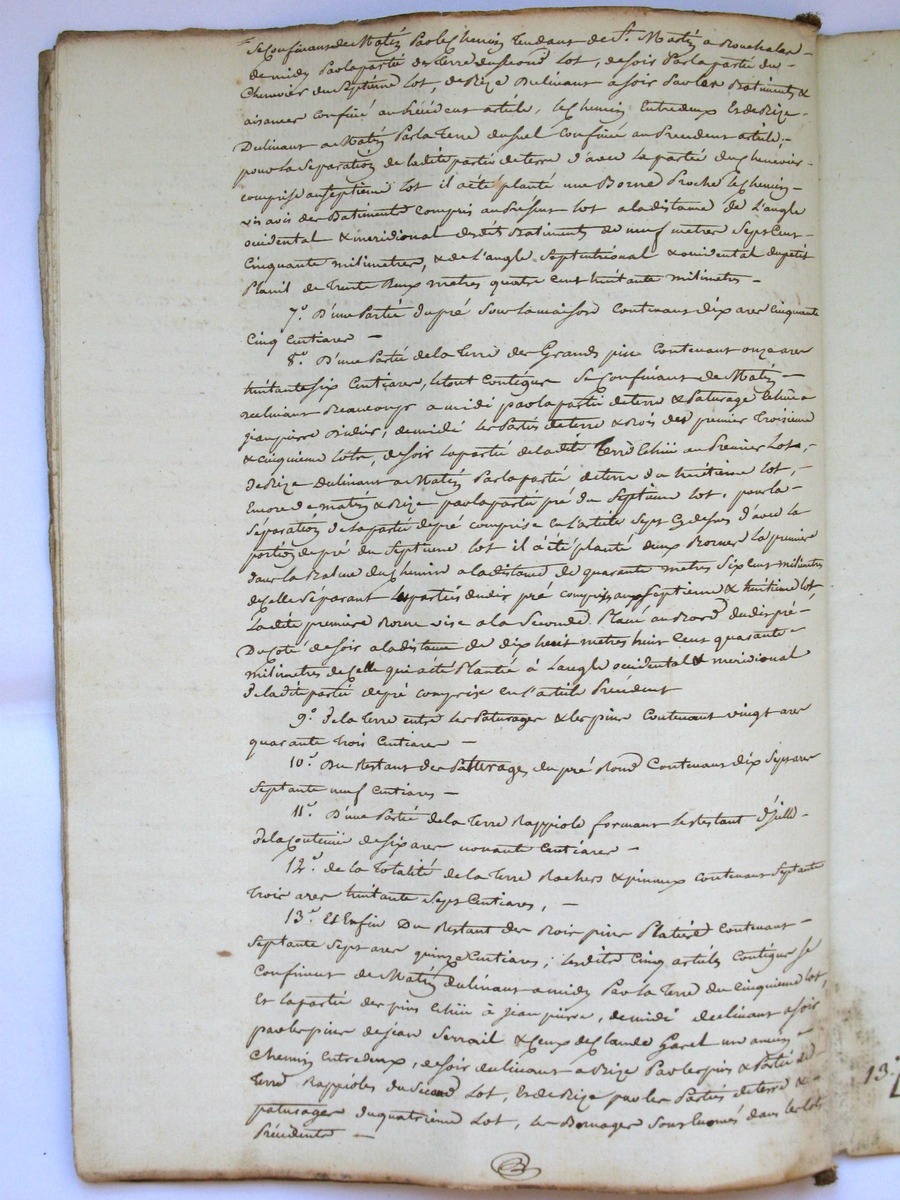 Se Confinant de Matin Par le Chemin Tendant de St. Martin a
de midi Par la partie des Terre du second Lot, de soir Par la partie du
Chenevier du Septième Lot, de Bize Declinant a soir Par les Batiments &
aisances confiné au Précédent article, le Chemin Entredeux Et de Bize
Declinant a Matin Par la Terre duquel Confiné au Précédent article
pour la Separation de ladite partie de terre d'avec la partie du Chenevier
comprise au Septième Lot il a été planté une Borne Proche le Chemin
vis avis des Batiments Compris au Présent Lot a la distance de L'angle
occidental & meridional desdits Batiments de neuf metres Sept Cent
Cinquante milimetres, & de L'angle Septentrional & occidental du petit
de Trente deux metres quatre cent huitante milimetres
7.° D'une Partie du pré Sous La maison Contenant dix ares Cinquante
Cinq Centiares
8.° D'une Partie de la Terre des Grands pins Contenant onze ares
huitante six Centiares, le tout Contigue Se Confinant de Matin
declinant Beaucoup a midi par la partie de terre & Paturage Echue a
jean pierre Didier, de midi les Parties de terre & Bois des premier Troisieme
& cinquieme Lots, de soir la partie de ladite Terre Echue au Premier Lot,
de Bize declinant a Matin Par la partie de terre du huitieme Lot,
Encore de matin & Bize par la partie pré du Septieme Lot, pour la
Séparation de la partie de pré comprise en L'article Sept Cy dessus d'avec la
portion de pré du Septieme Lot il a été planté deux Bornes La premiere
dans la du Chemin a la distance de quarante metres Six Cent milimetres
de Celle Separant les parties dudit pré comprises aux Septieme & huitieme Lot
Ladite premiere Borne vise a la Seconde Placé au Bord dudit pré
Du Coté de soir a la distance de dix huit metres huit Cent quarante
milimetres de Celle qui a été Plantée à L'angle occidental & meridional
de ladite partie de pré comprise en L'article Précédent
9.° de la Terre entre les Paturages & les pins Contenant vingt ares
quarante Trois Centiares
10.° Du Restant des Patturages du pré Rond Contenant dix Sept ares
Septante neuf Centiares
11.° D'une Partie de la Terre Rappiole formant le Restant d'jcelle
de la Contenue de six ares nonante Centiares
12.° de la Totalité de la Terre Rochers & pineux Contenant Septante
Trois ares huitante Sept Centiares,
13.° Et Enfin Du Restant des Bois pins Platiere Contenant
Septante Sept ares quinze Centiares, lesdits Cinq articles Contigue Se
Confinent de Matin declinant a midi Par la Terre du Cinquieme Lot,
Et la partie des pins Echue à jean pierre, de midi declinant a soir
par les pins de jean Serrail & Ceux de Claude Garet un ancien
Chemin Entre deux, de soir declinant a Bize Par les pins & Partie de
Terre Rappioles du Second Lot, Et de Bize par les Parties de terre &
paturages du quatrieme Lot, les Bornages Sont només dans les Lots
Précédents
13.°